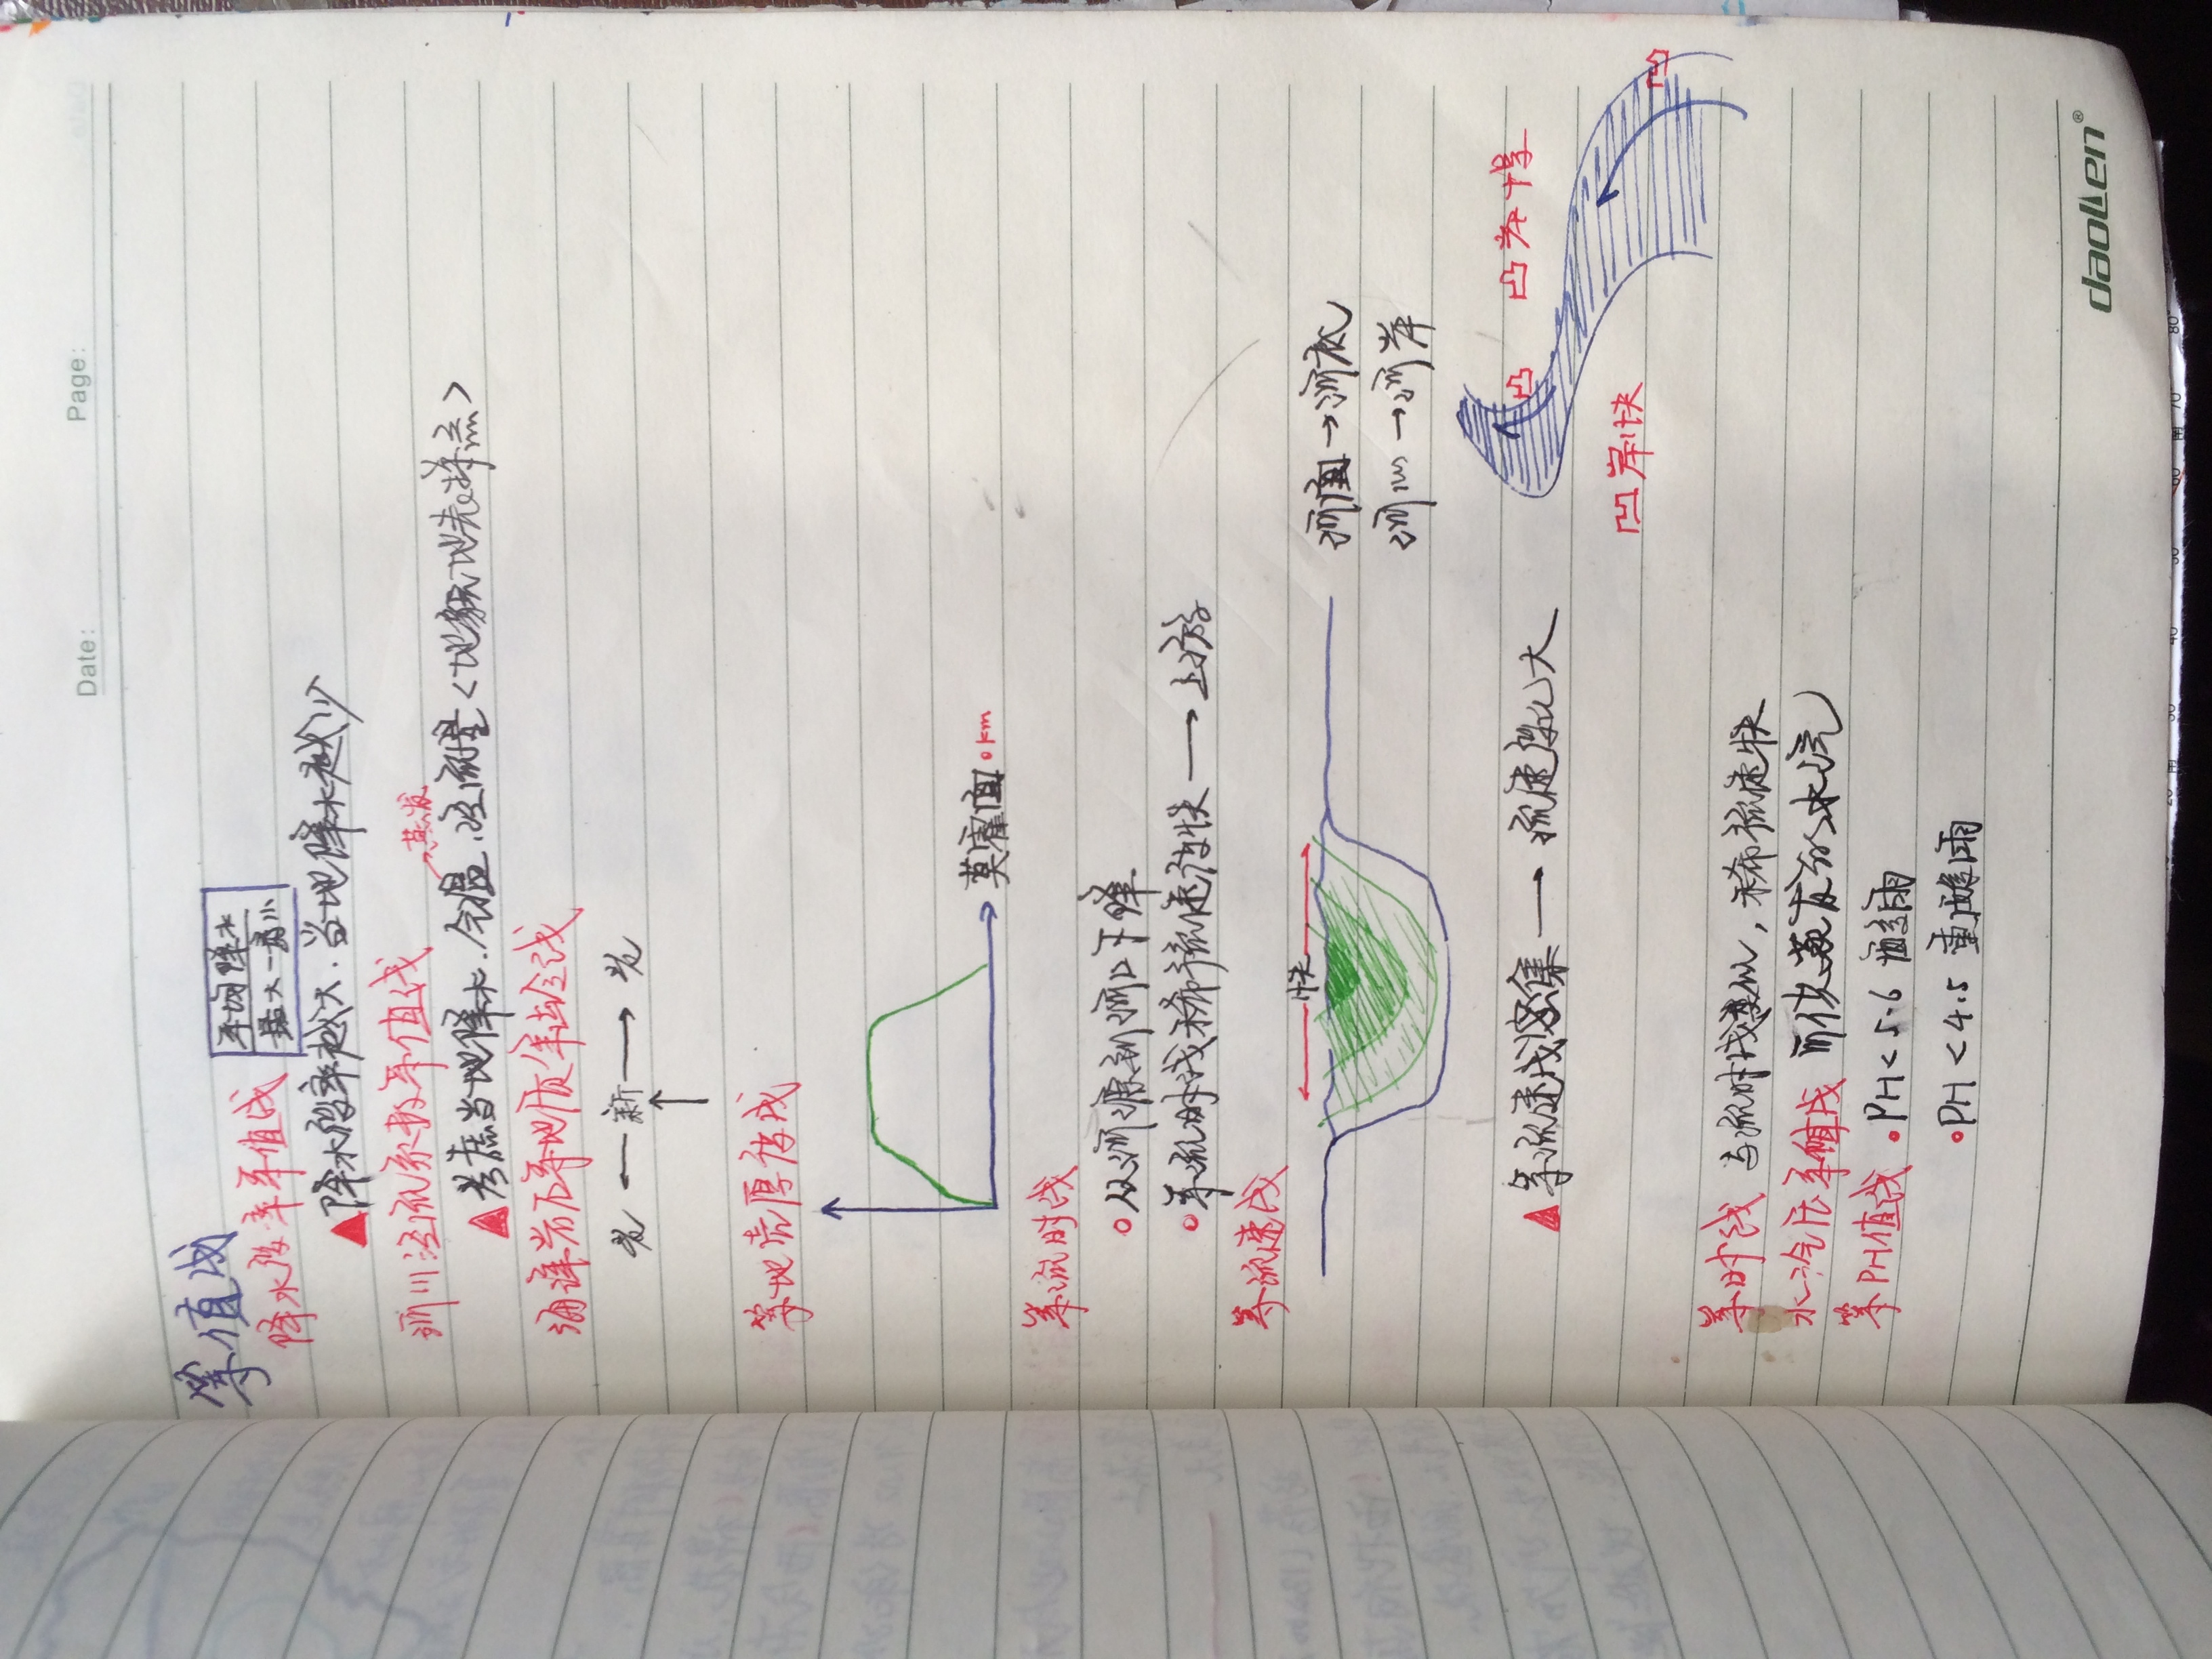 Date: Page:
等值线
降水变率等值线
平均降水
最大-最小
降水变率越大.当地降水越少
河川径流系数等值线
→蒸发
考虑当地降水.气温.径流量<地貌地表特点>
海洋岩石等地质年龄线
老 ← 新 → 老
↑
等地壳厚度线
莫霍面 0km
等流时线
从河源到河口下降
等流时线稀疏流速快 → 上游
等流速线
快
河面 → 河底
河心 → 河岸
凸 凸岸慢
等流速线密集 → 流速变化大
凹岸快
凹
等时线 与流时线类似,稀流速快
水汽压等值线 所供蒸发的水汽
等PH值线 ·PH<5.6 酸雨
·PH<4.5 重酸雨
daolen®